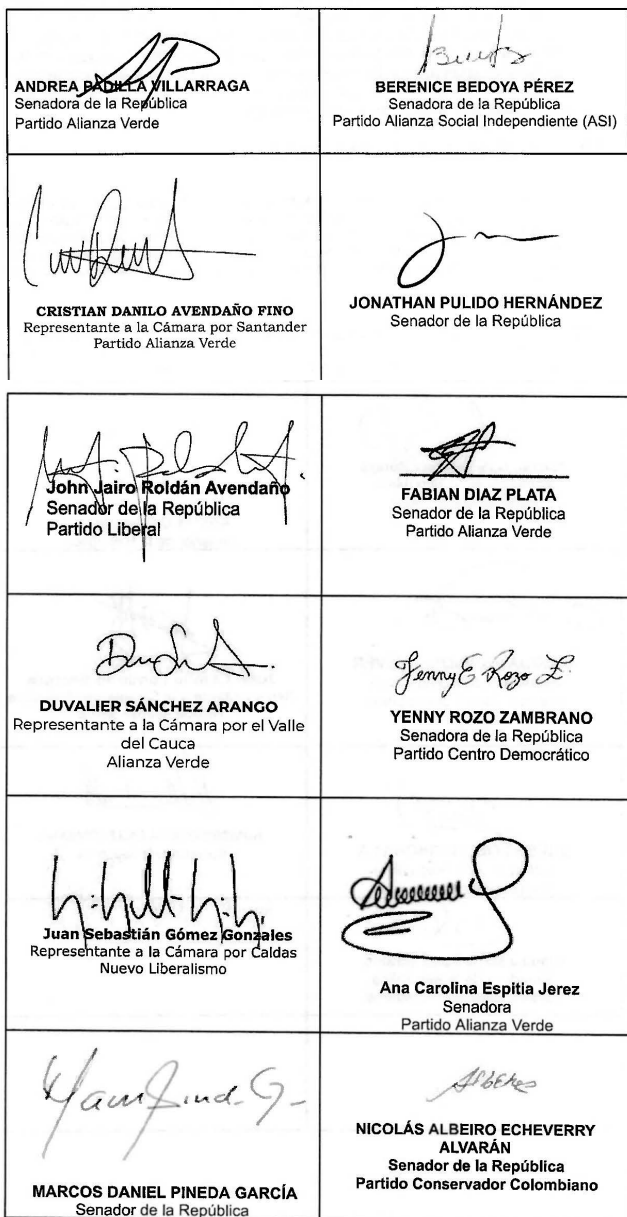 ANDREA PADILLA VILLARRAGA
Senadora de la República
Partido Alianza Verde
BERENICE BEDOYA PÉREZ
Senadora de la República
Partido Alianza Social Independiente (ASI)
CRISTIAN DANILO AVENDAÑO FINO
Representante a la Cámara por Santander
Partido Alianza Verde
JONATHAN PULIDO HERNÁNDEZ
Senador de la República
John Jairo Roldán Avendaño
Senador de la República
Partido Liberal
FABIAN DIAZ PLATA
Senador de la República
Partido Alianza Verde
DUVALIER SÁNCHEZ ARANGO
Representante a la Cámara por el Valle
del Cauca
Alianza Verde
Yenny E Rozo Z.
YENNY ROZO ZAMBRANO
Senadora de la República
Partido Centro Democrático
Juan Sebastián Gómez Gonzales
Representante a la Cámara por Caldas
Nuevo Liberalismo
Ana Carolina Espitia Jerez
Senadora
Partido Alianza Verde
MARCOS DANIEL PINEDA GARCÍA
Senador de la República
NICOLÁS ALBEIRO ECHEVERRY
ALVARÁN
Senador de la República
Partido Conservador Colombiano